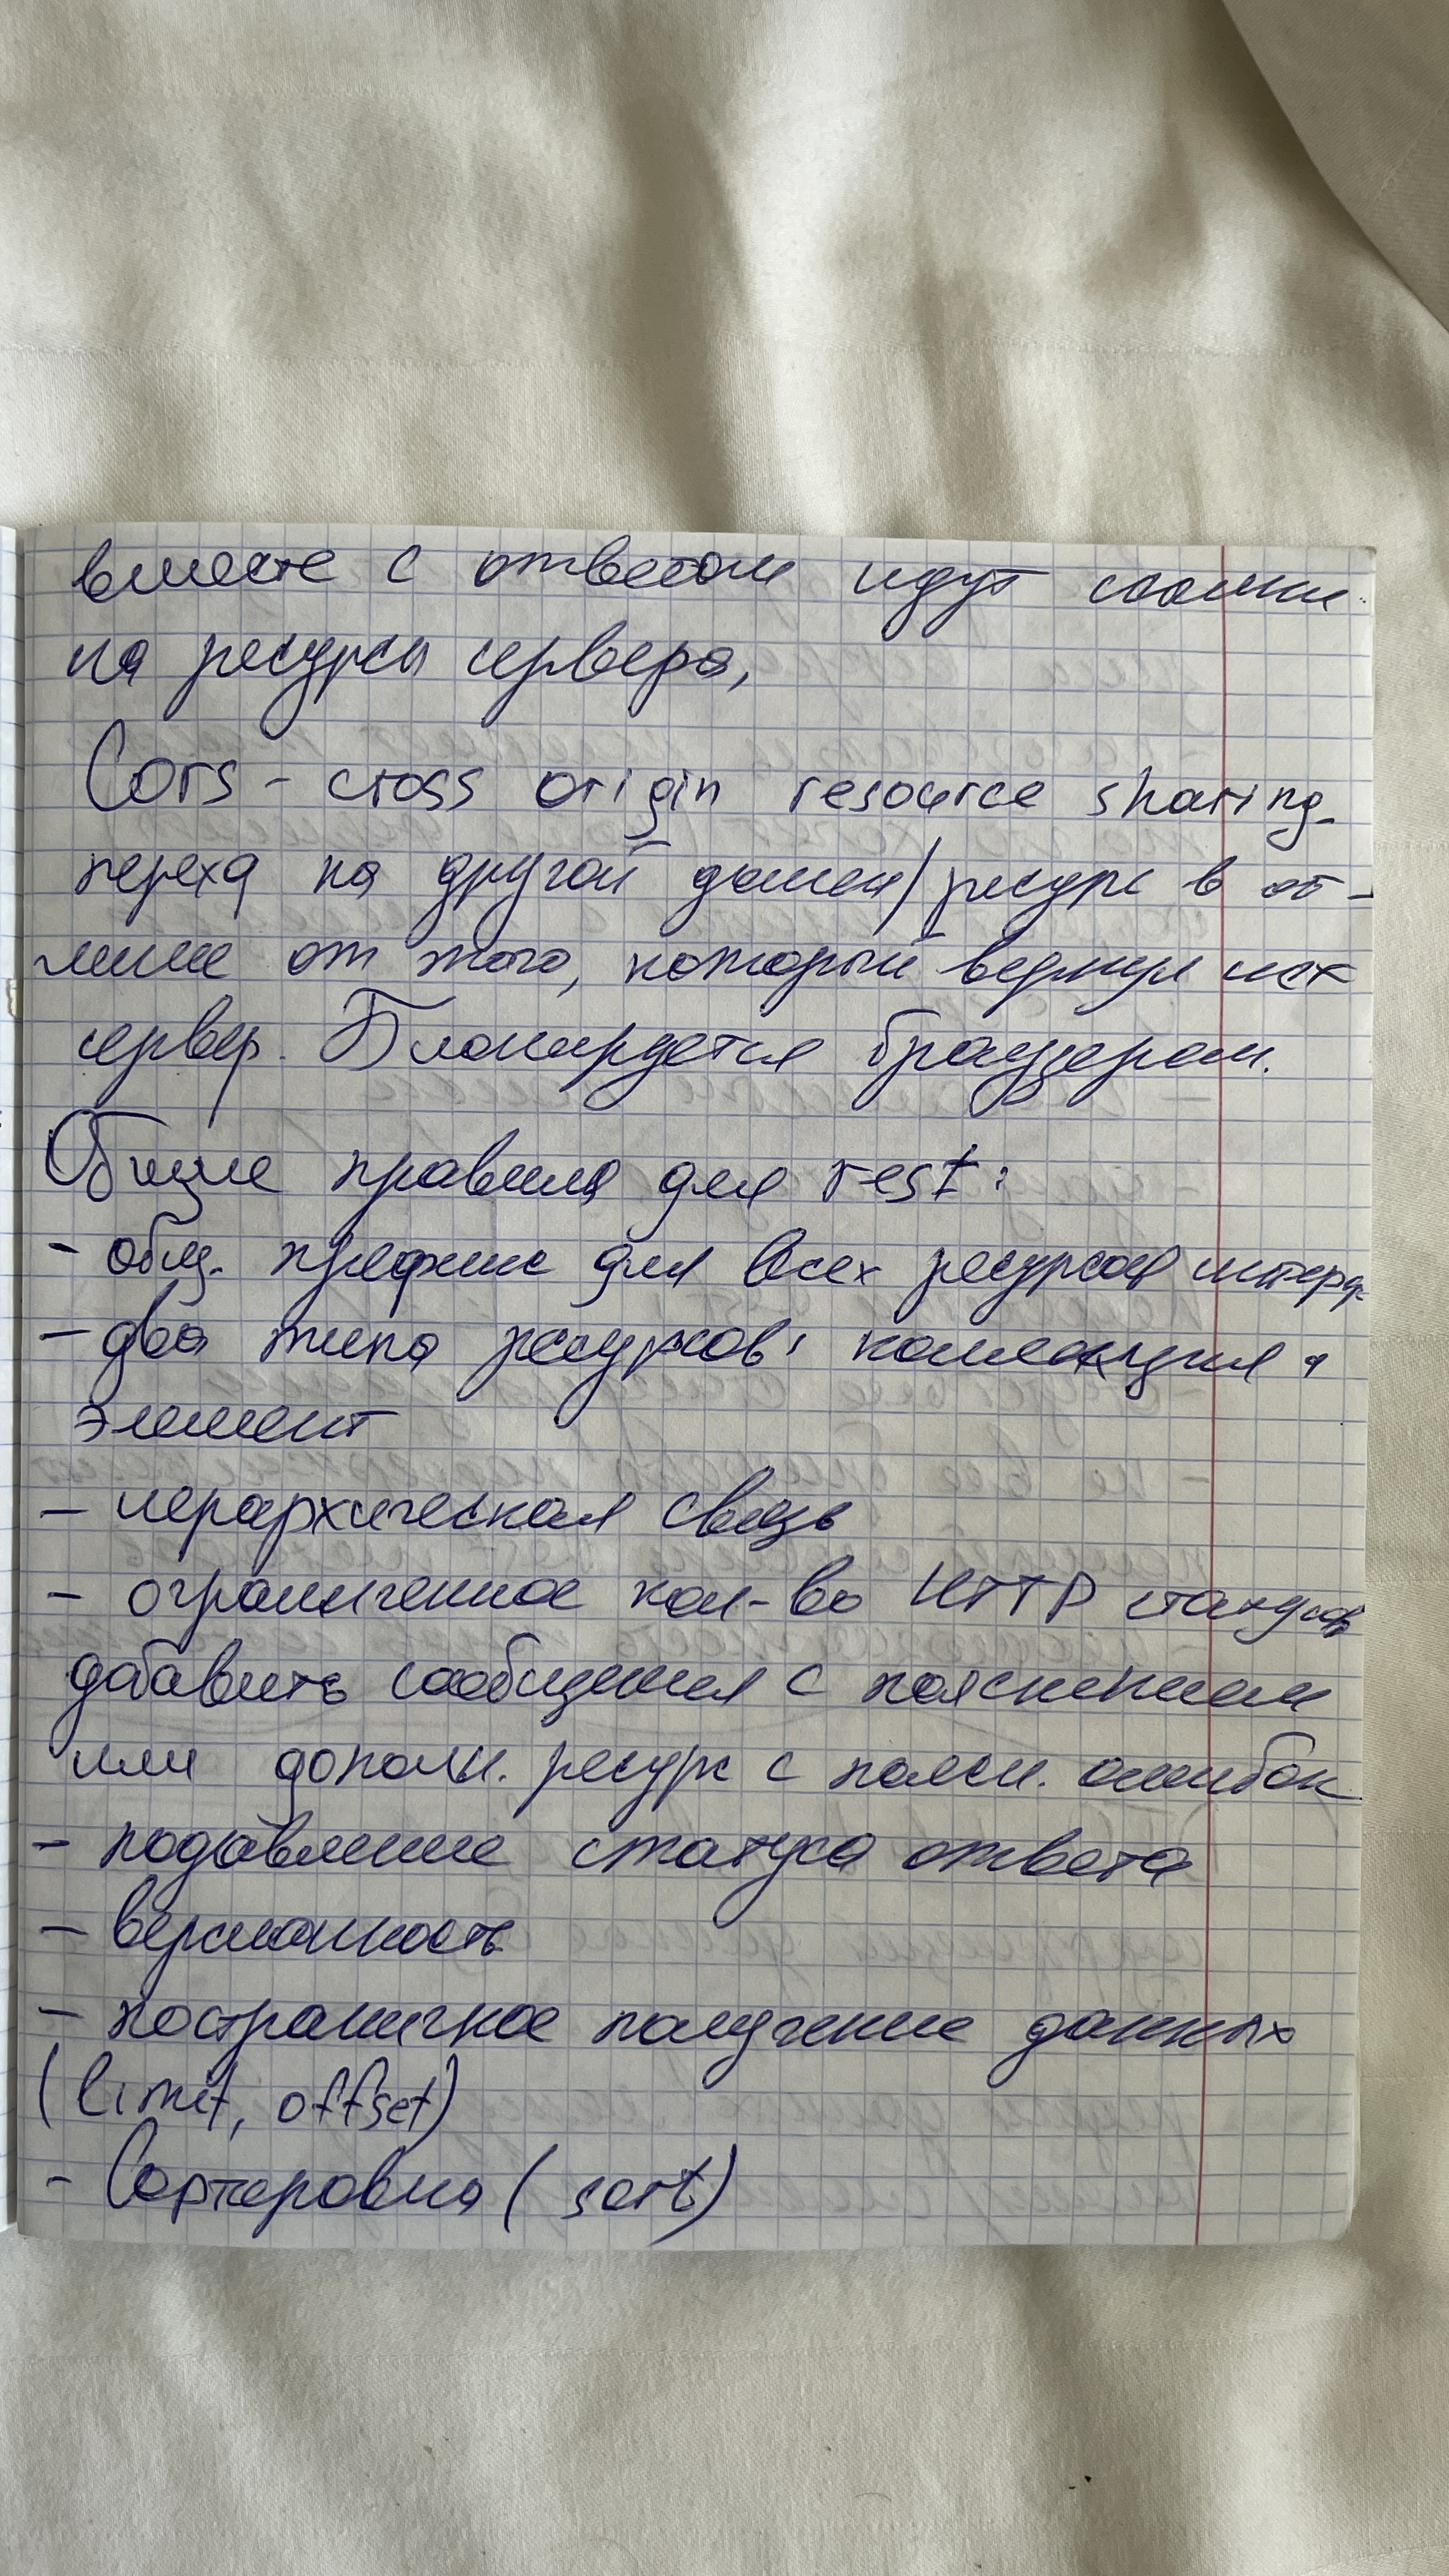 вместе с ответом идут ссылки
на ресурсы сервера,
Cors - cross origin resource sharing-
перехд на другой домен/ресурс в от-
личие от того, который вернул исх
сервер. Блокирдется браузером.
Общие правила для rest:
- общ. префикс для всех ресурсов интерф
- два типа ресурсов: коллекция и
элемент
- иерархическая связь
- ограниченное кол-во HTTP статусов
дбавить сообщения с пояснением
или дополн. ресурс с поясн. ошибок
- подавление статуса ответа
- версионность
- постраничное получение данных
(limit, offset)
- Сортировка (sort)